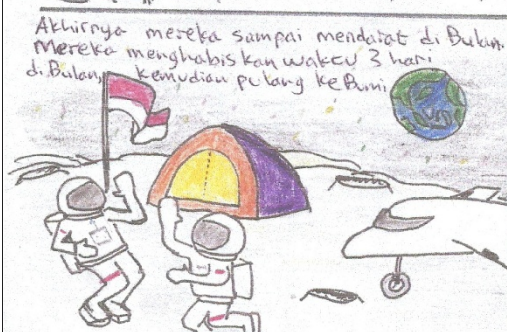 Akhirnya mereka sampai mendarat di Bulan.
Mereka menghabiskan waktu 3 hari
di Bulan, kemudian pulang ke Bumi